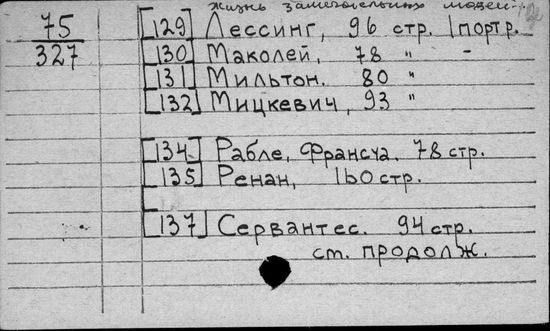 жизнь замечательных людей.
75
327
[129] Лессинг, 96 стр. 1портр.
[130] Маколей, 78 " -
[131] Мильтон. 80 "
[132] Мицкевич, 93 "
[134] Рабле, Франсуа. 78 стр.
[135] Ренан, 160 стр.
[137] Сервантес. 94 стр.
ст. продолж.